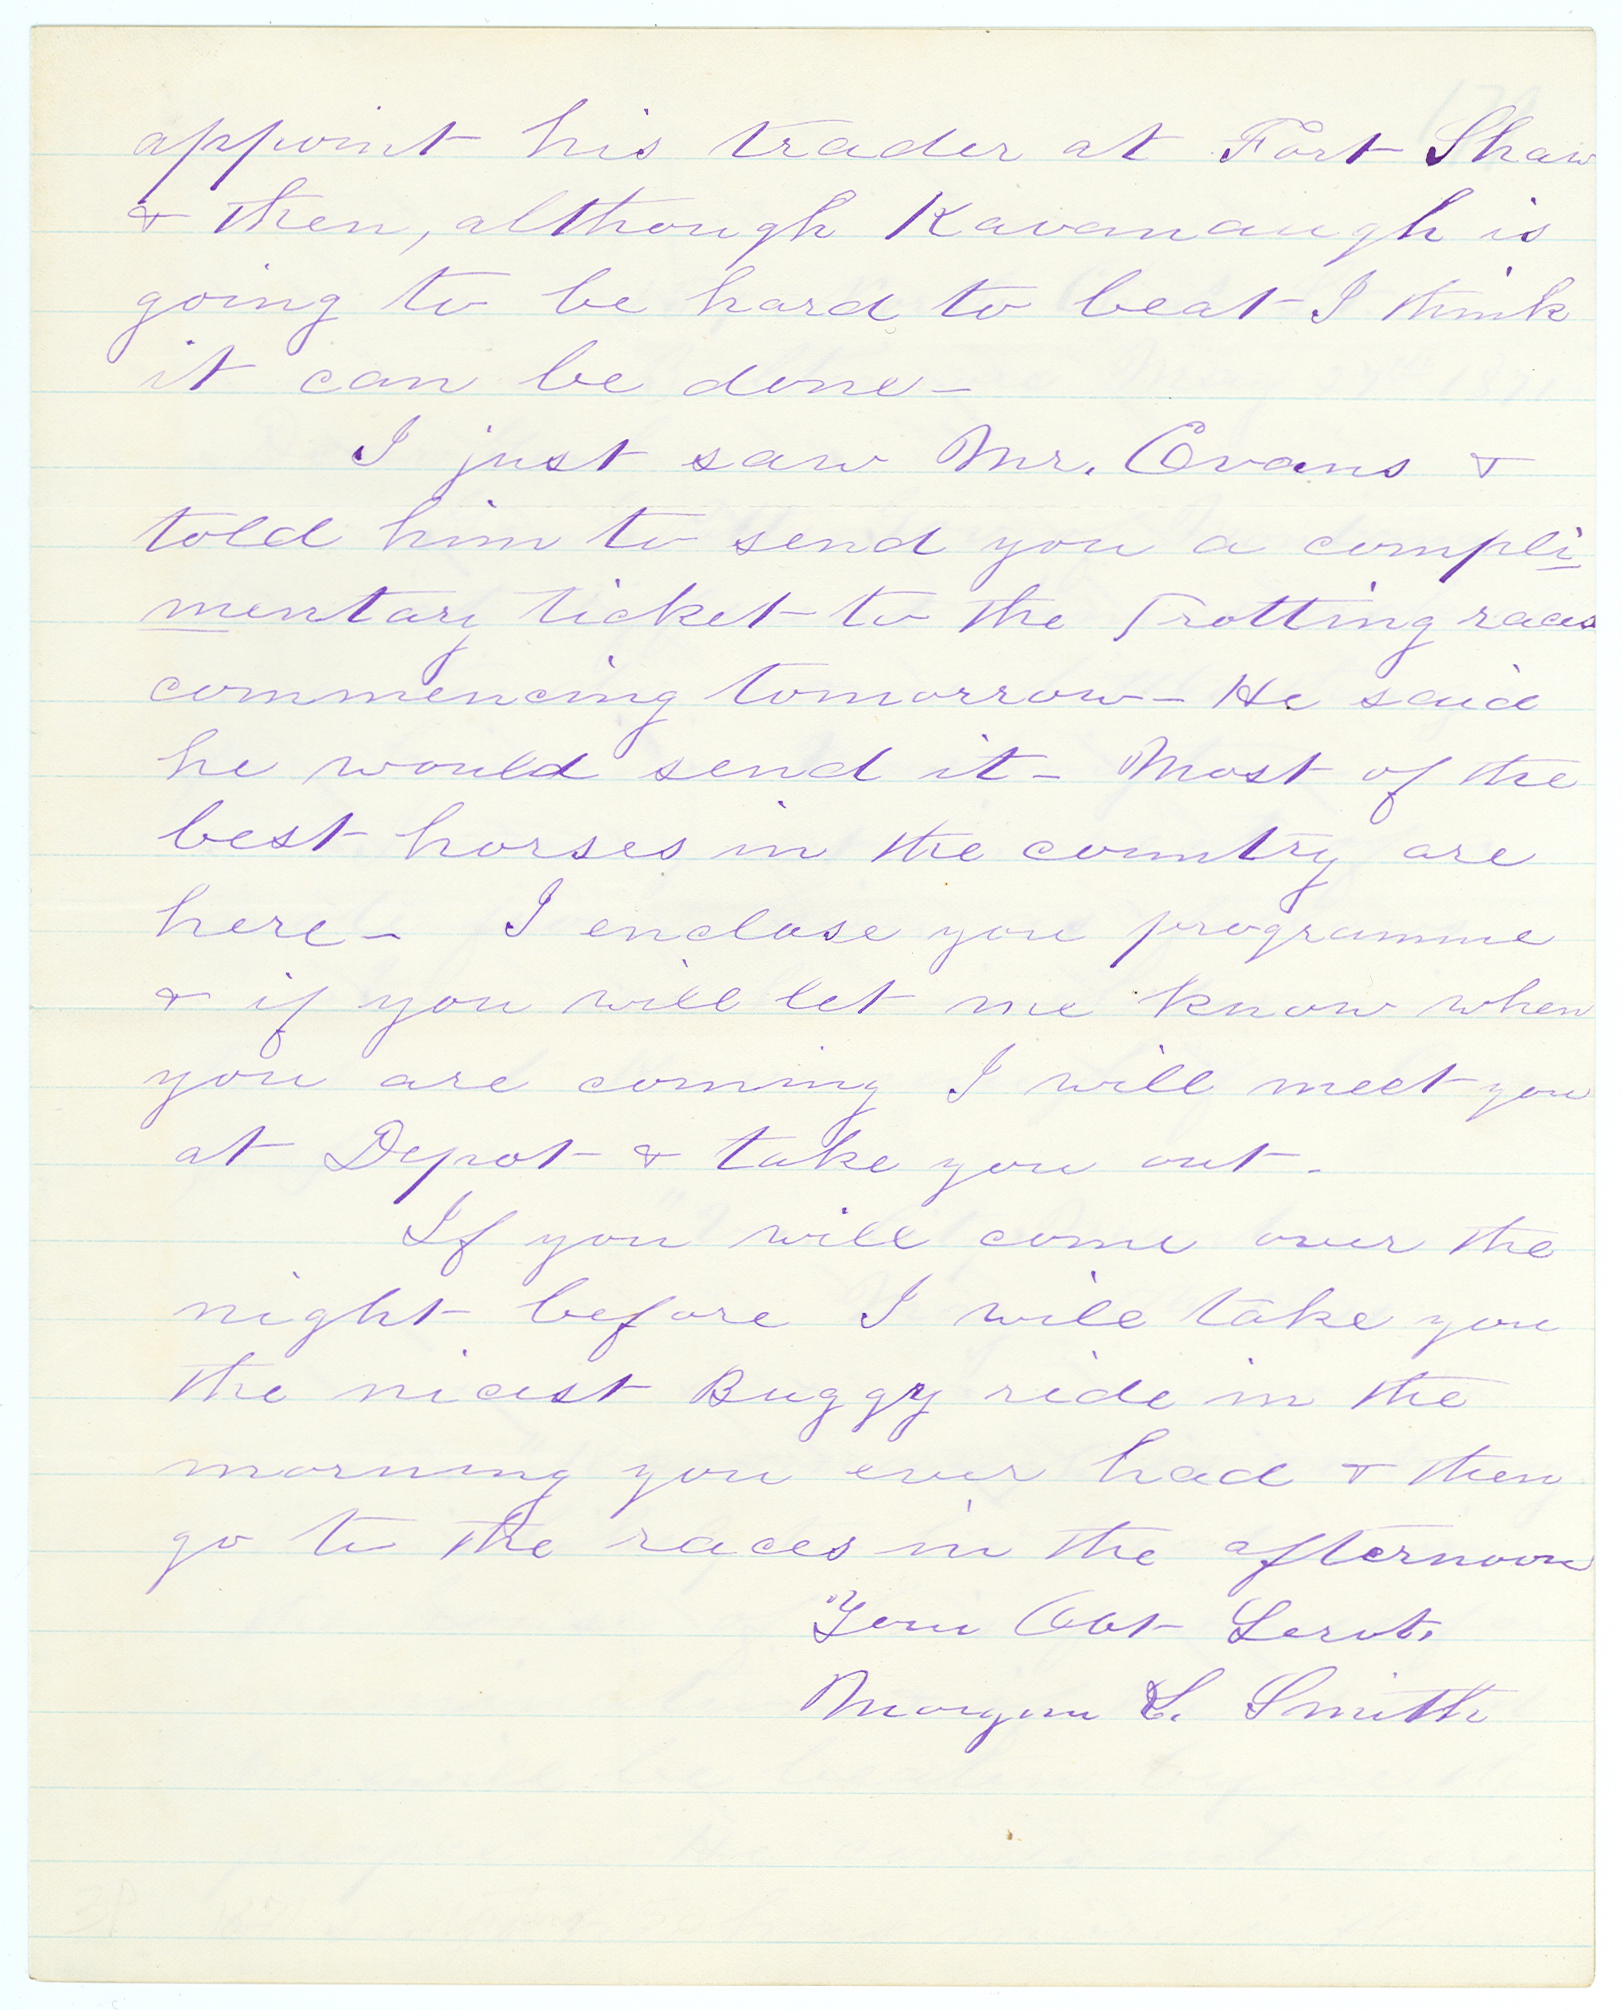 appoint his trader at Fort Shaw
& then, although Kavanaugh is
going to be hard to beat I think
it can be done—
I just saw Mr. Evans &
told him to send you a compli=
mentary ticket to the Trotting races
commencing tomorrow— He said
he would send it— Most of the
best horses in the country are
here— I enclose you programme
& if you will let me know when
you are coming I will meet you
at Depot & take you out.
If you will come over the
night before I will take you
the nicest Buggy ride in the
morning you ever had & then
go to the races in the afternoon
Your Obt Servt.
Morgan L. Smith